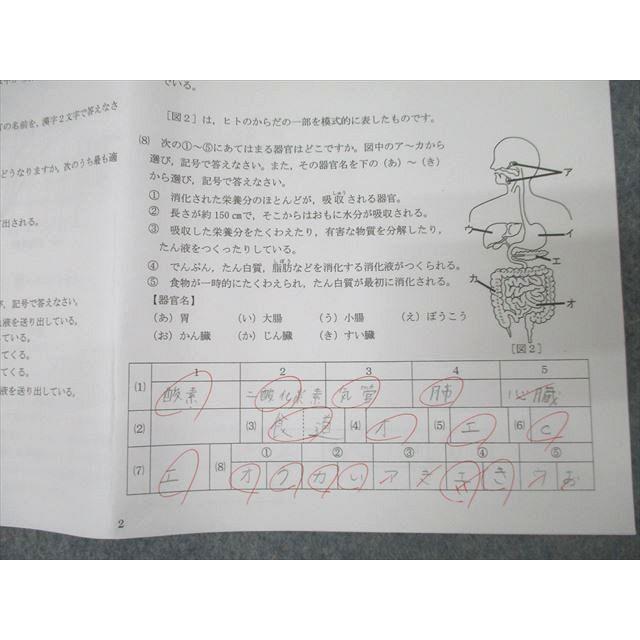 でいる。
の名前を、漢字2文字で答えなさ
どうなりますか。次のうち最も適
出される。
、記号で答えなさい。
血液を送り出している。
てくる。
てくる。
液を送り出している。
[図2]は、ヒトのからだの一部を模式的に表したものです。
(8) 次の①〜⑤にあてはまる器官はどこですか。図中のア〜カから
選び、記号で答えなさい。また、その器官名を下の(あ)〜(き)
から選び、記号で答えなさい。
① 消化された栄養分のほとんどが、吸収される器官。
② 長さが約150cmで、そこからはおもに水分が吸収される。
③ 吸収した栄養分をたくわえたり、有害な物質を分解したり、
たん液をつくったりしている。
④ でんぷん、たん白質、脂肪などを消化する消化液がつくられる。
⑤ 食物が一時的にたくわえられ、たん白質が最初に消化される。
【器官名】
(あ) 胃 (い) 大腸 (う) 小腸 (え) ぼうこう
(お) かん臓 (か) じん臓 (き) すい臓
ア
イ
ウ
エ
カ
オ
[図2]
1 2 3 4 5
(1) 酸素 二酸化炭素 気管 肺 心臓
(2) (3) 食道 (4) オ (5) エ (6) C
① ② ③ ④ ⑤
(7) エ (8) オ う カ い ア え き ア お
2